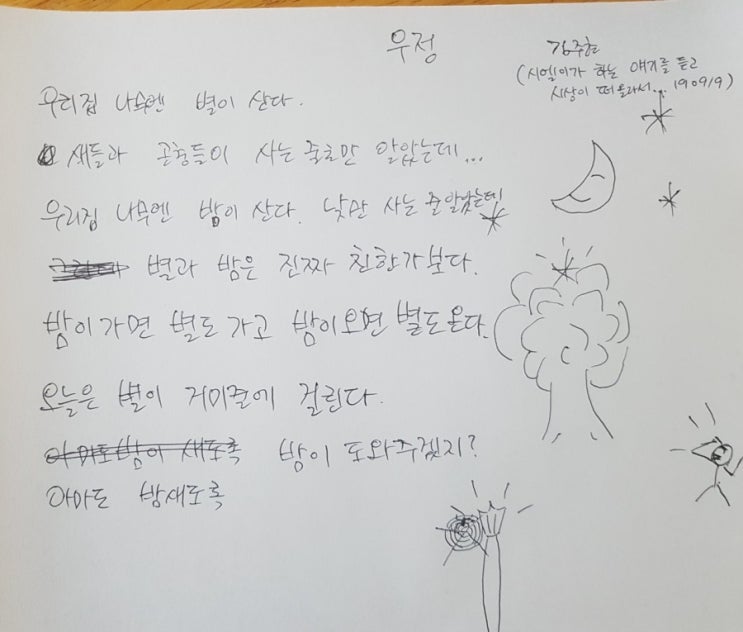 우정
김주호
(시엘이가 하는 얘기를 듣고
시상이 떠올라서... 190919)
우리집 나무엔 별이 산다.
새들과 곤충들이 사는 줄로만 알았는데...
우리집 나무엔 밤이 산다. 낮만 사는 줄 알았는데!
별과 밤은 진짜 친한가보다.
밤이가면 별도 가고 밤이오면 별도온다.
오늘은 별이 거미줄에 걸린다.
아마도 밤이 새도록 밤이 도와주겠지?
아마도 밤새도록